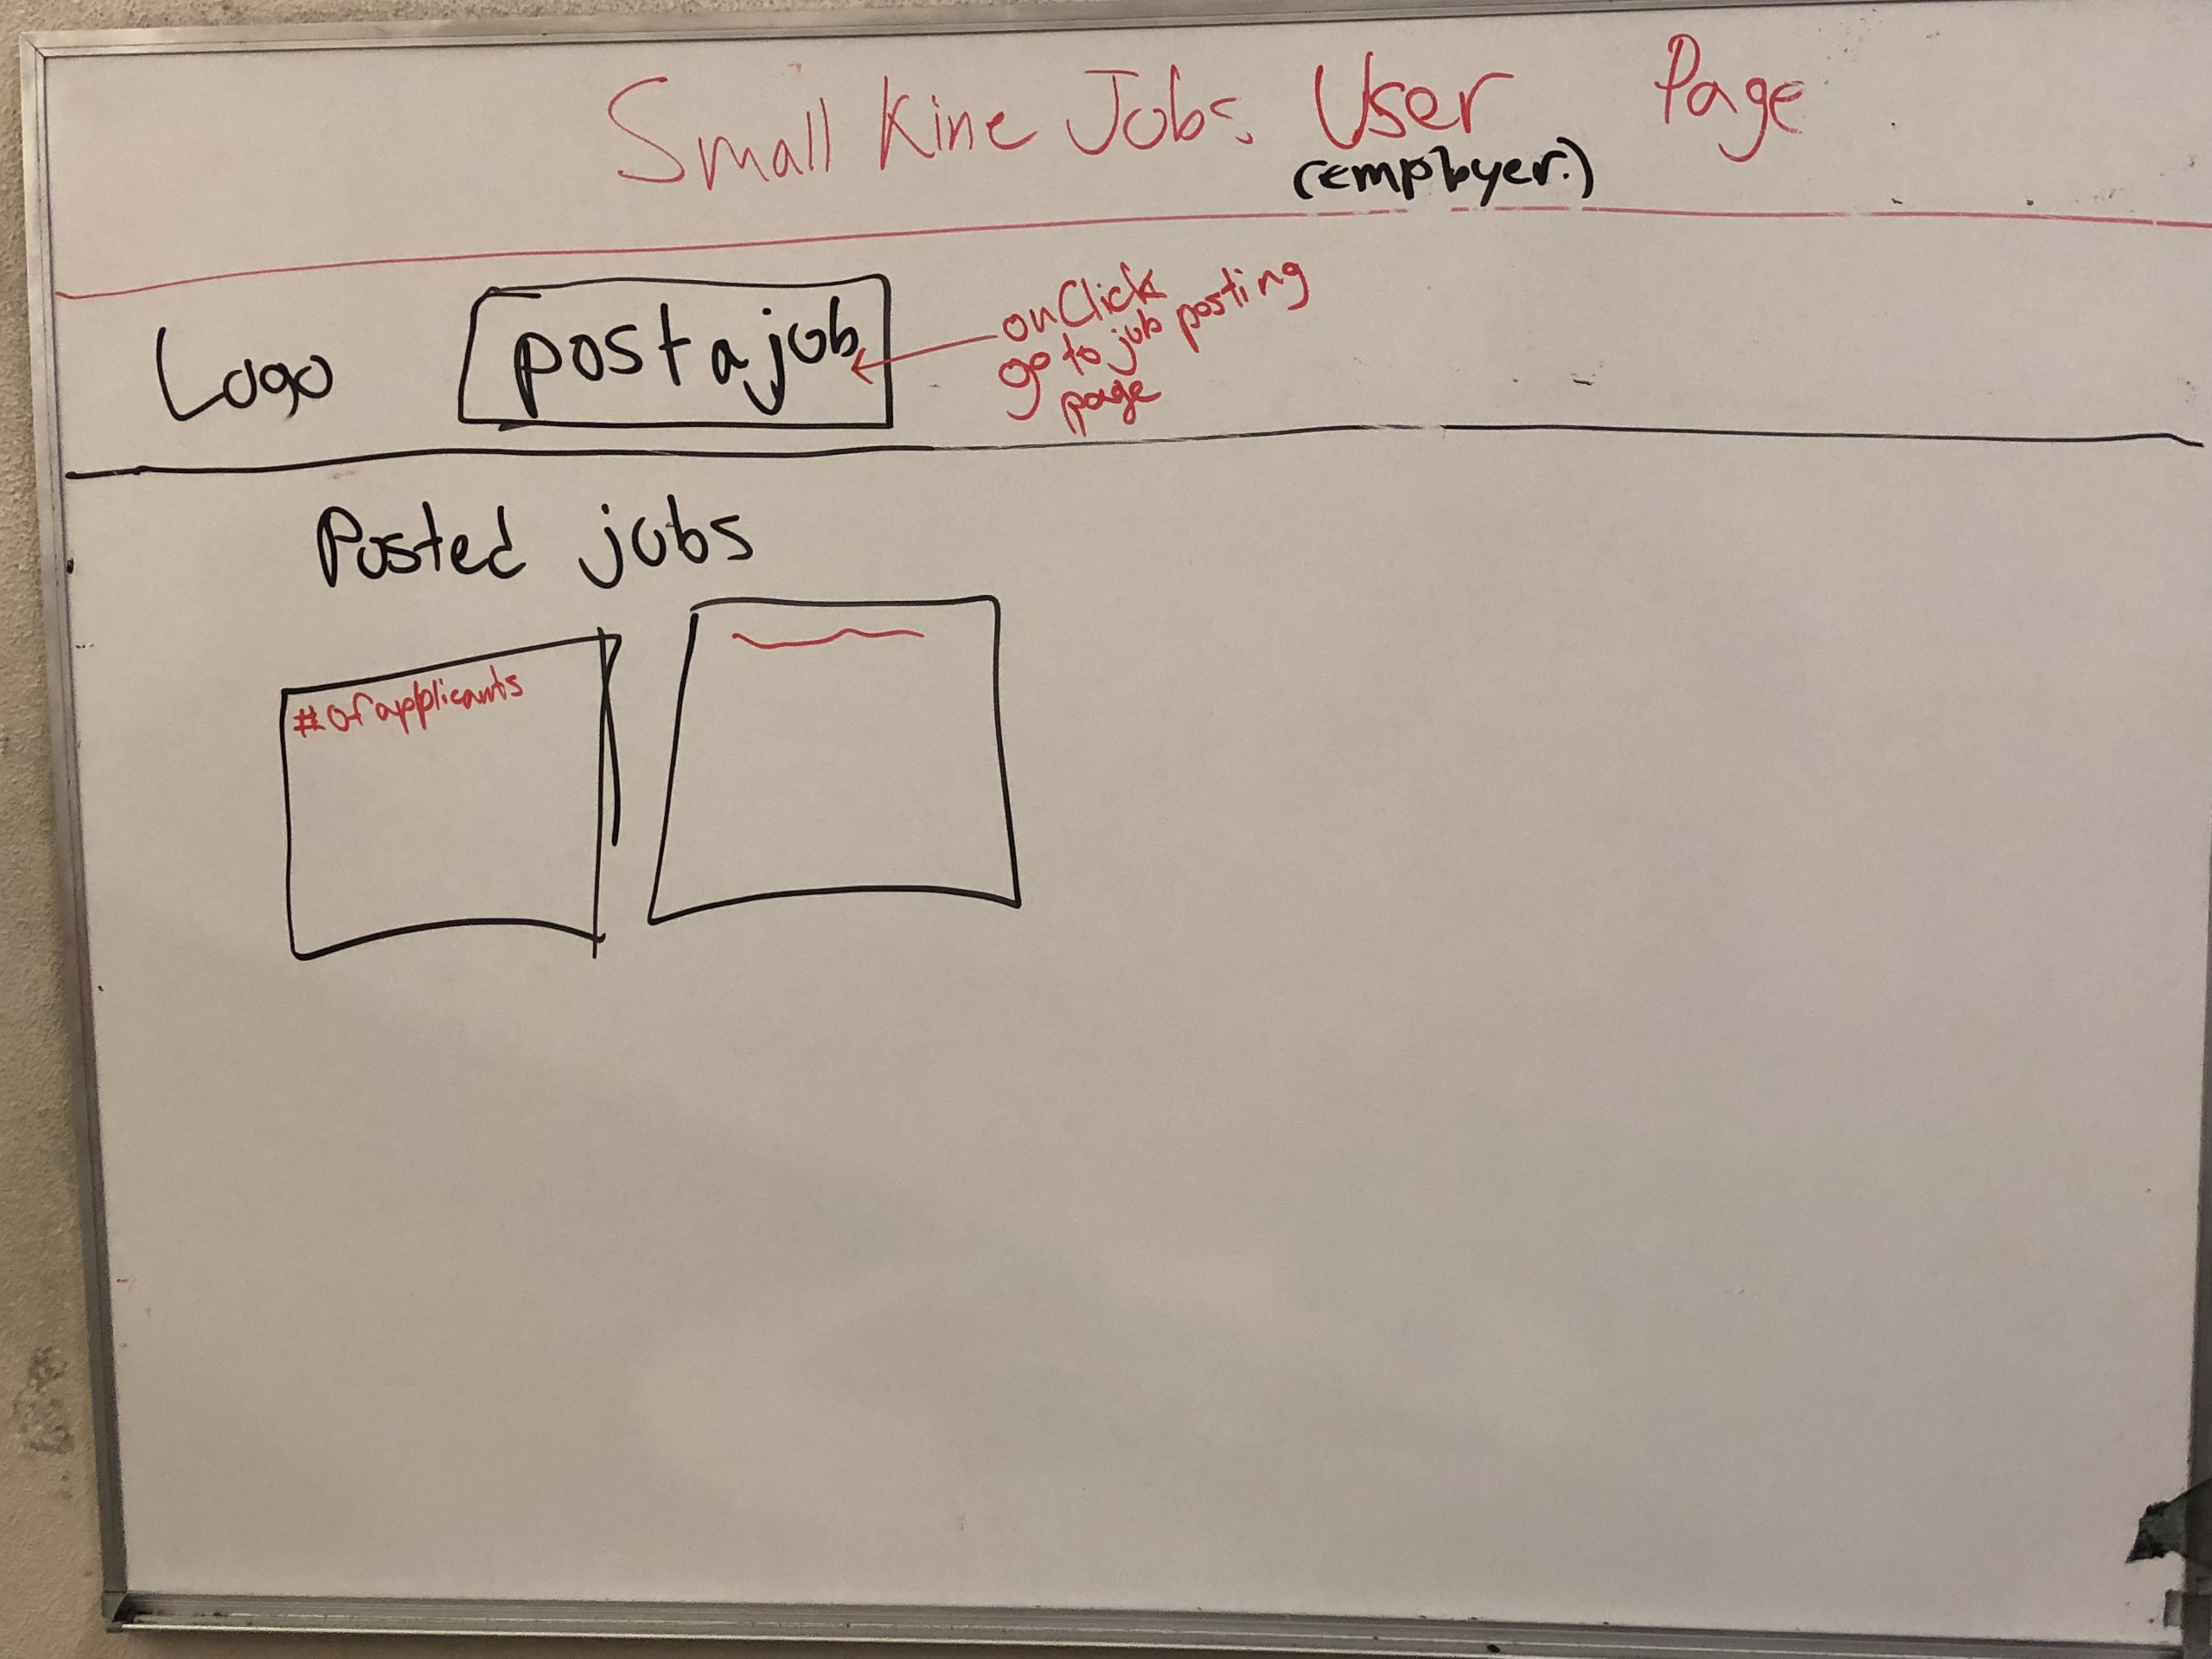 Small Kine Jobs. User Page
(employer.)
Logo
post a job
onClick
go to job posting
page
Posted jobs
# of applicants